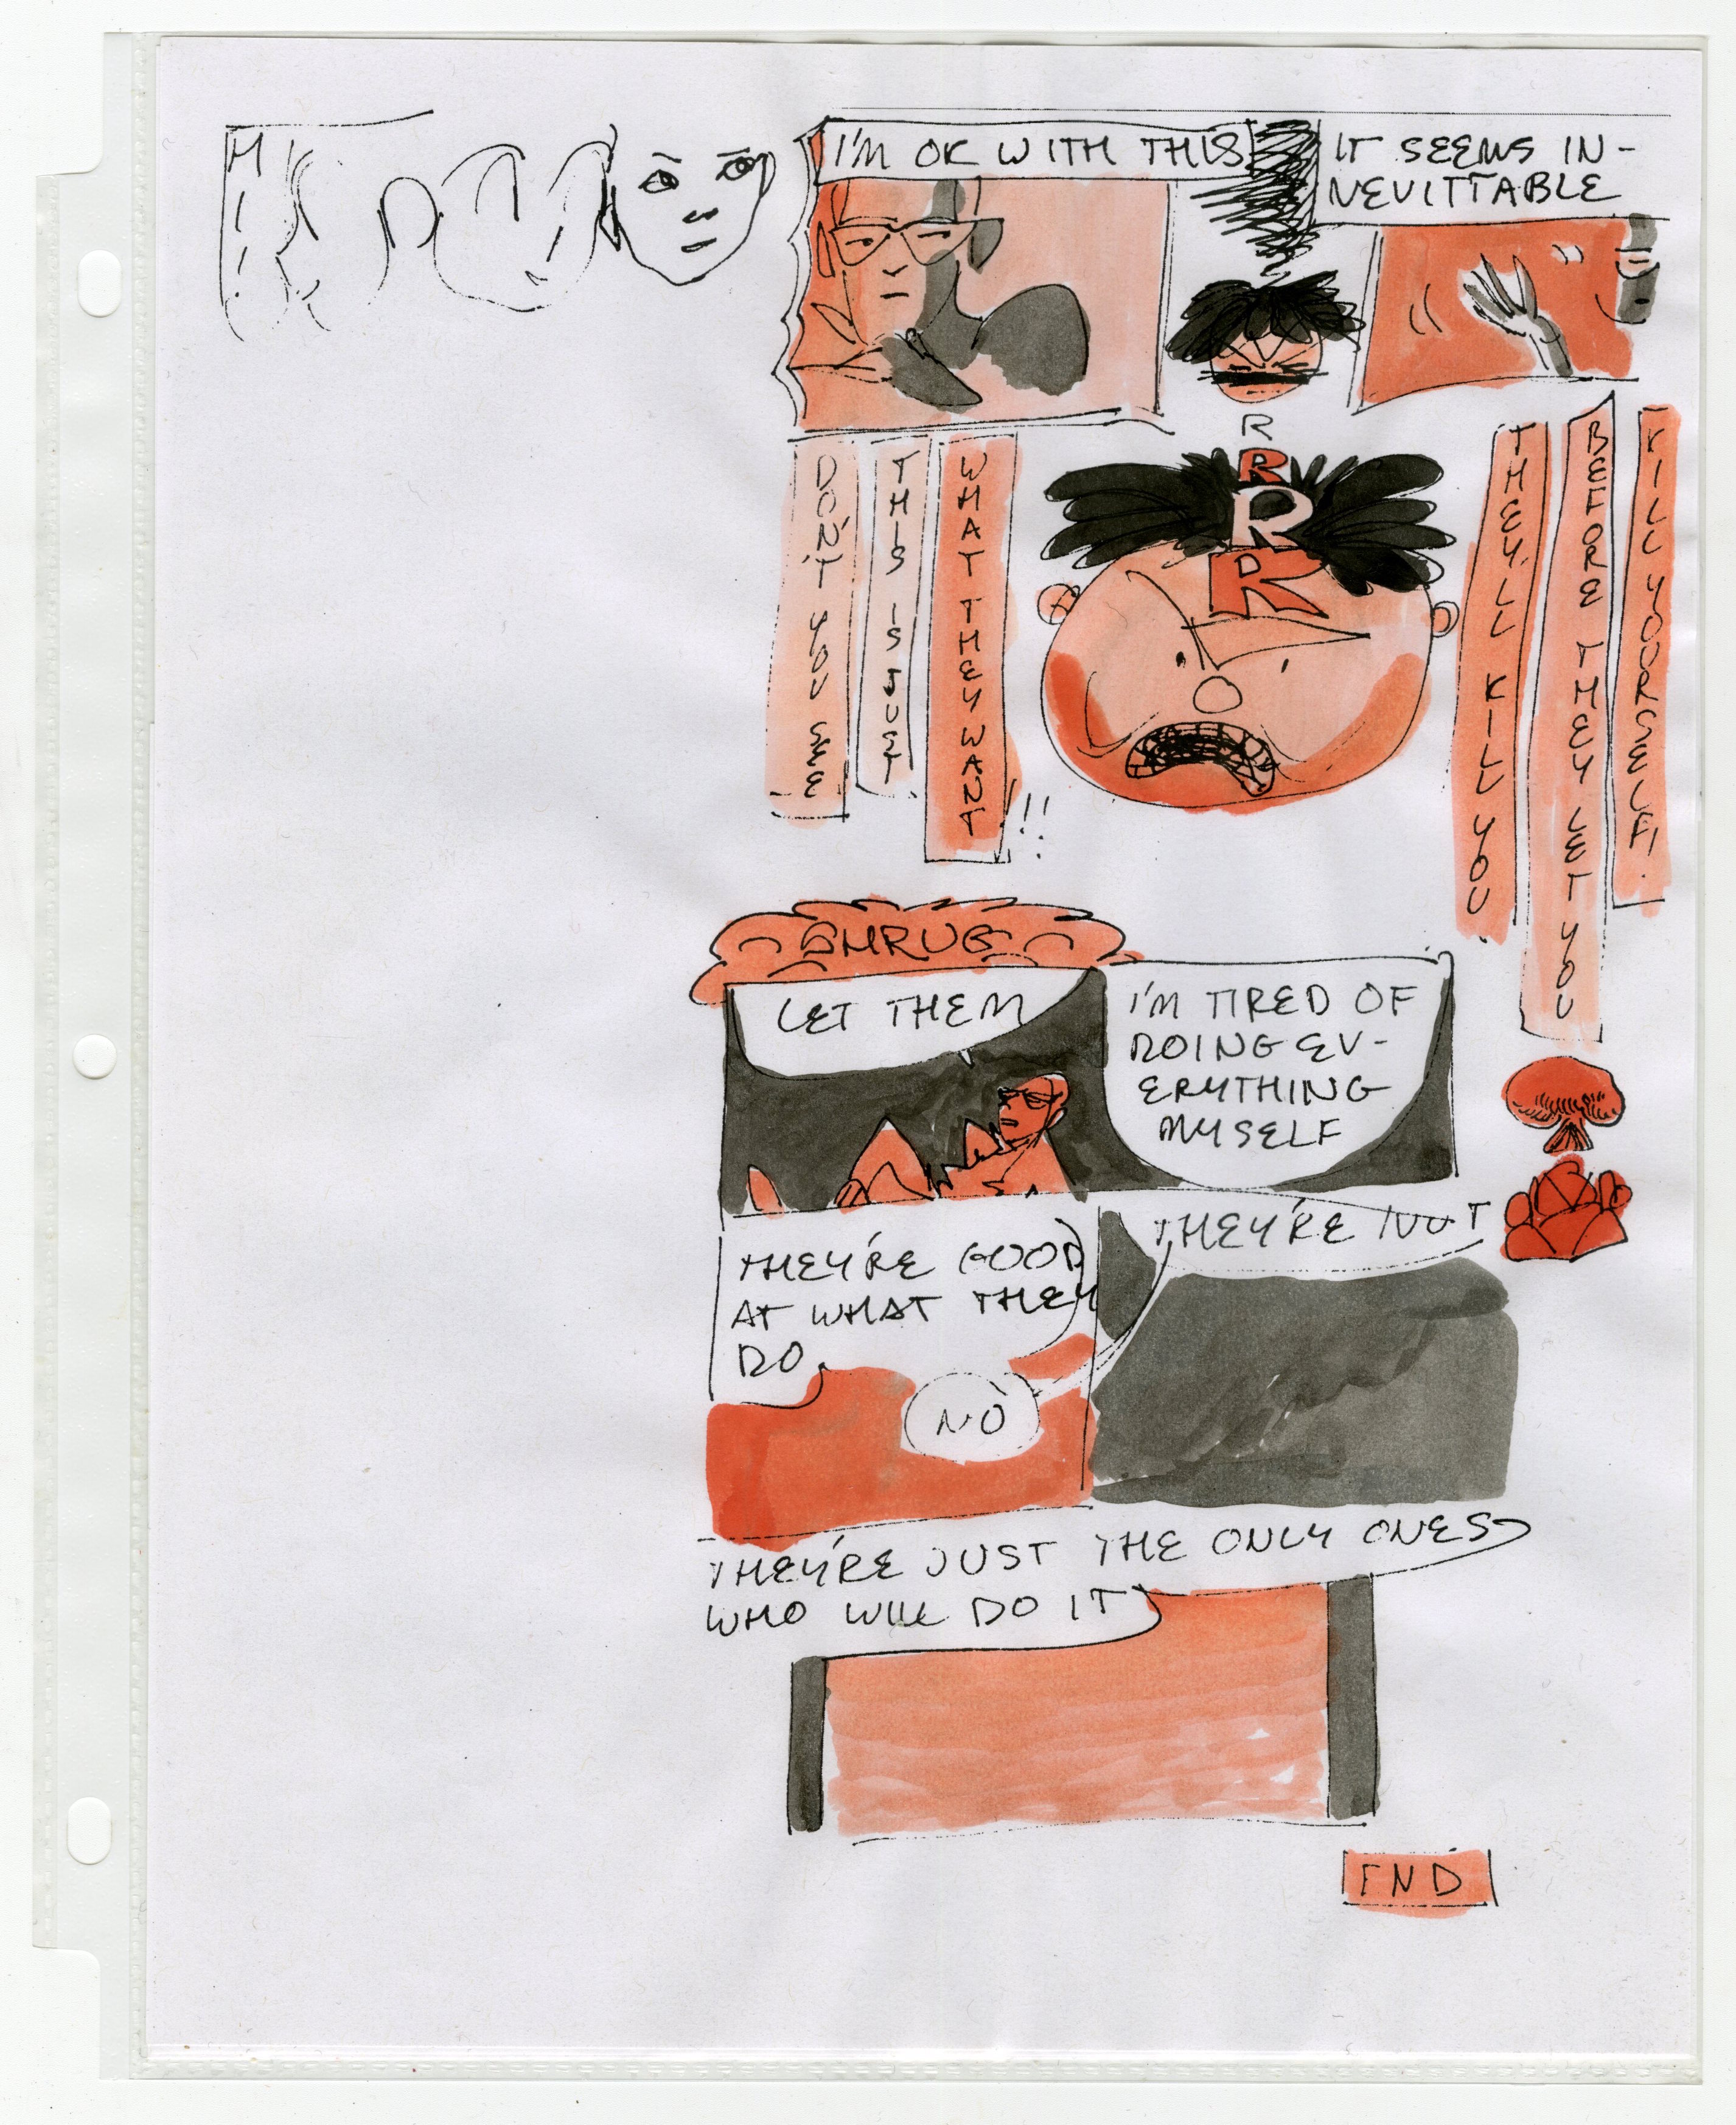 I'M OK WITH THIS
IT SEEMS IN-
NEVITTABLE
R
R
R
R
DON'T YOU SEE
THIS IS JUST
WHAT THEY WANT!!!
THEY'LL KILL YOU.
BEFORE THEY LET YOU
KILL YOURSELF.
SHRUG
LET THEM
I'M TIRED OF
DOING EV-
ERYTHING
MYSELF
THEY'RE GOOD
AT WHAT THEY
DO
THEY'RE NOT
NO
THEY'RE JUST THE ONLY ONES
WHO WILL DO IT
END